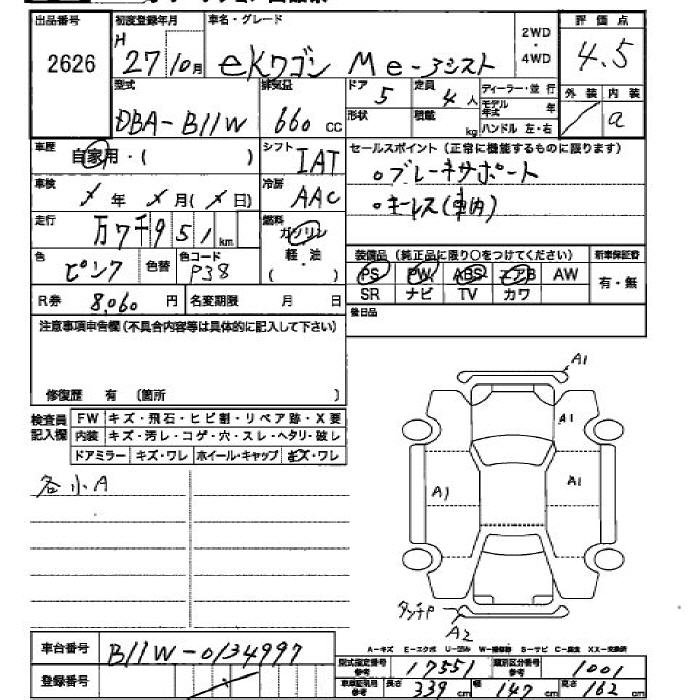 出品番号
2626
初度登録年月
H 27/10月
車名・グレード
eKワゴン Me-アシスト
2WD
・
4WD
評価点
4.5
外装 内装
a
型式
DBA-B11W
排気量
660 cc
ドア 5
定員 4 人
形状
積載 kg
ディーラー・並行
モデル年式 年
ハンドル 左・右
車歴
自家用・( )
シフト
IAT
セールスポイント(正常に機能するものに限ります)
○ブレーキサポート
○キーレス(車内)
車検
X 年 X 月( X 日)
冷房
AAC
走行
万7千951km
燃料
ガソリン
軽・油
( )
色
ピンク
色替
色コード
P38
装備品(純正品に限り○をつけてください)
新車保証書
PS PW ABS エアB AW
有・無
SR ナビ TV カワ
R券 8,060 円
名変期限 月 日
後日品
注意事項申告欄(不具合内容等は具体的に記入して下さい)
修復歴 有 (箇所 )
検査員
記入欄
FW キズ・飛石・ヒビ割・リペア跡・X要
内装 キズ・汚レ・コゲ・穴・スレ・ヘタリ・破レ
ドアミラー キズ・ワレ ホイール・キャップ キズ・ワレ
各小A
A1
A1
A1
A1
タッチP
A2
A-キズ E-エクボ U-凹み W-補修跡 S-サビ C-腐食 XX-交換済
車台番号
B11W-0134997
登録番号
型式指定番号
参考
17551
類別区分番号
参考
1001
車庫証明用
参考
長さ 339 cm
幅 147 cm
高さ 162 cm